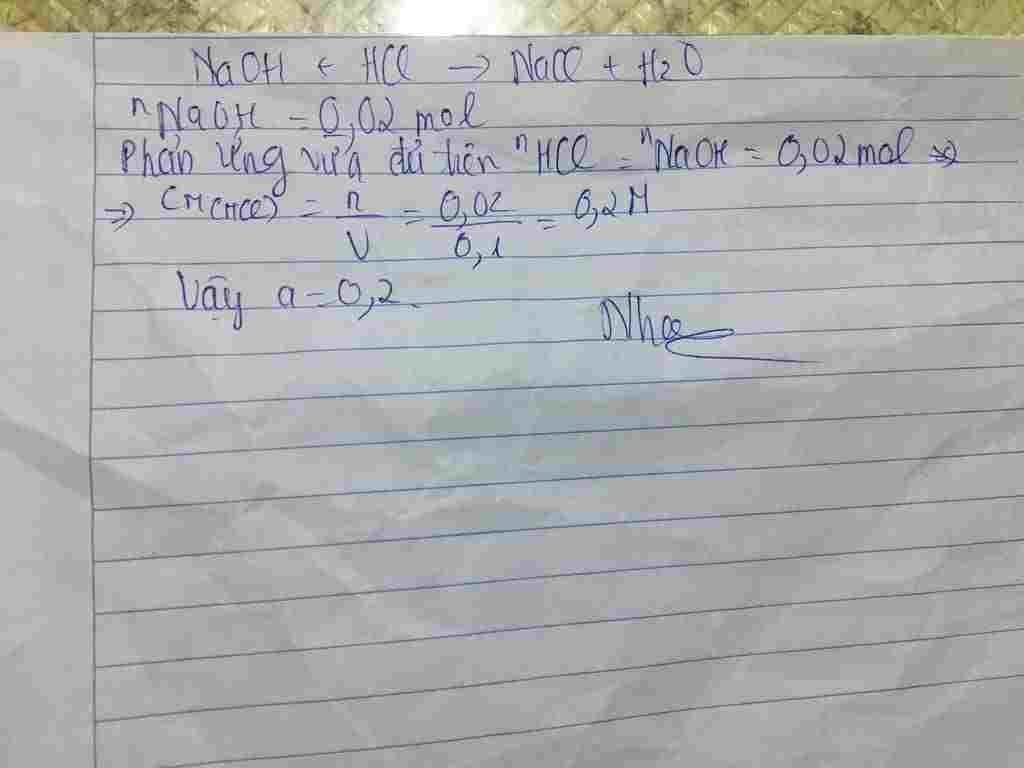 NaOH + HCl → NaCl + H2O
nNaOH = 0,02 mol
Phản ứng vừa đủ tiên nHCl = nNaOH = 0,02 mol ⇒
⇒ CM(HCl) = n/V = 0,02/0,1 = 0,2M
Vậy a = 0,2.